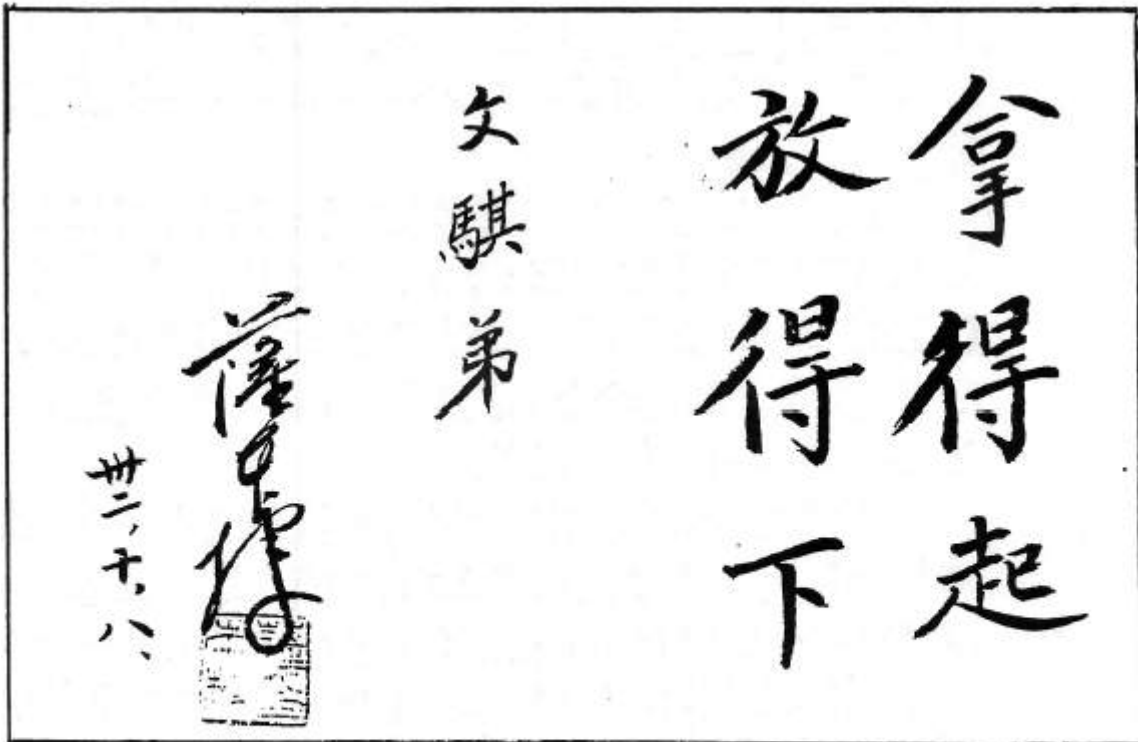 拿得起
放得下
文騏弟
薩
卅二、十、八、